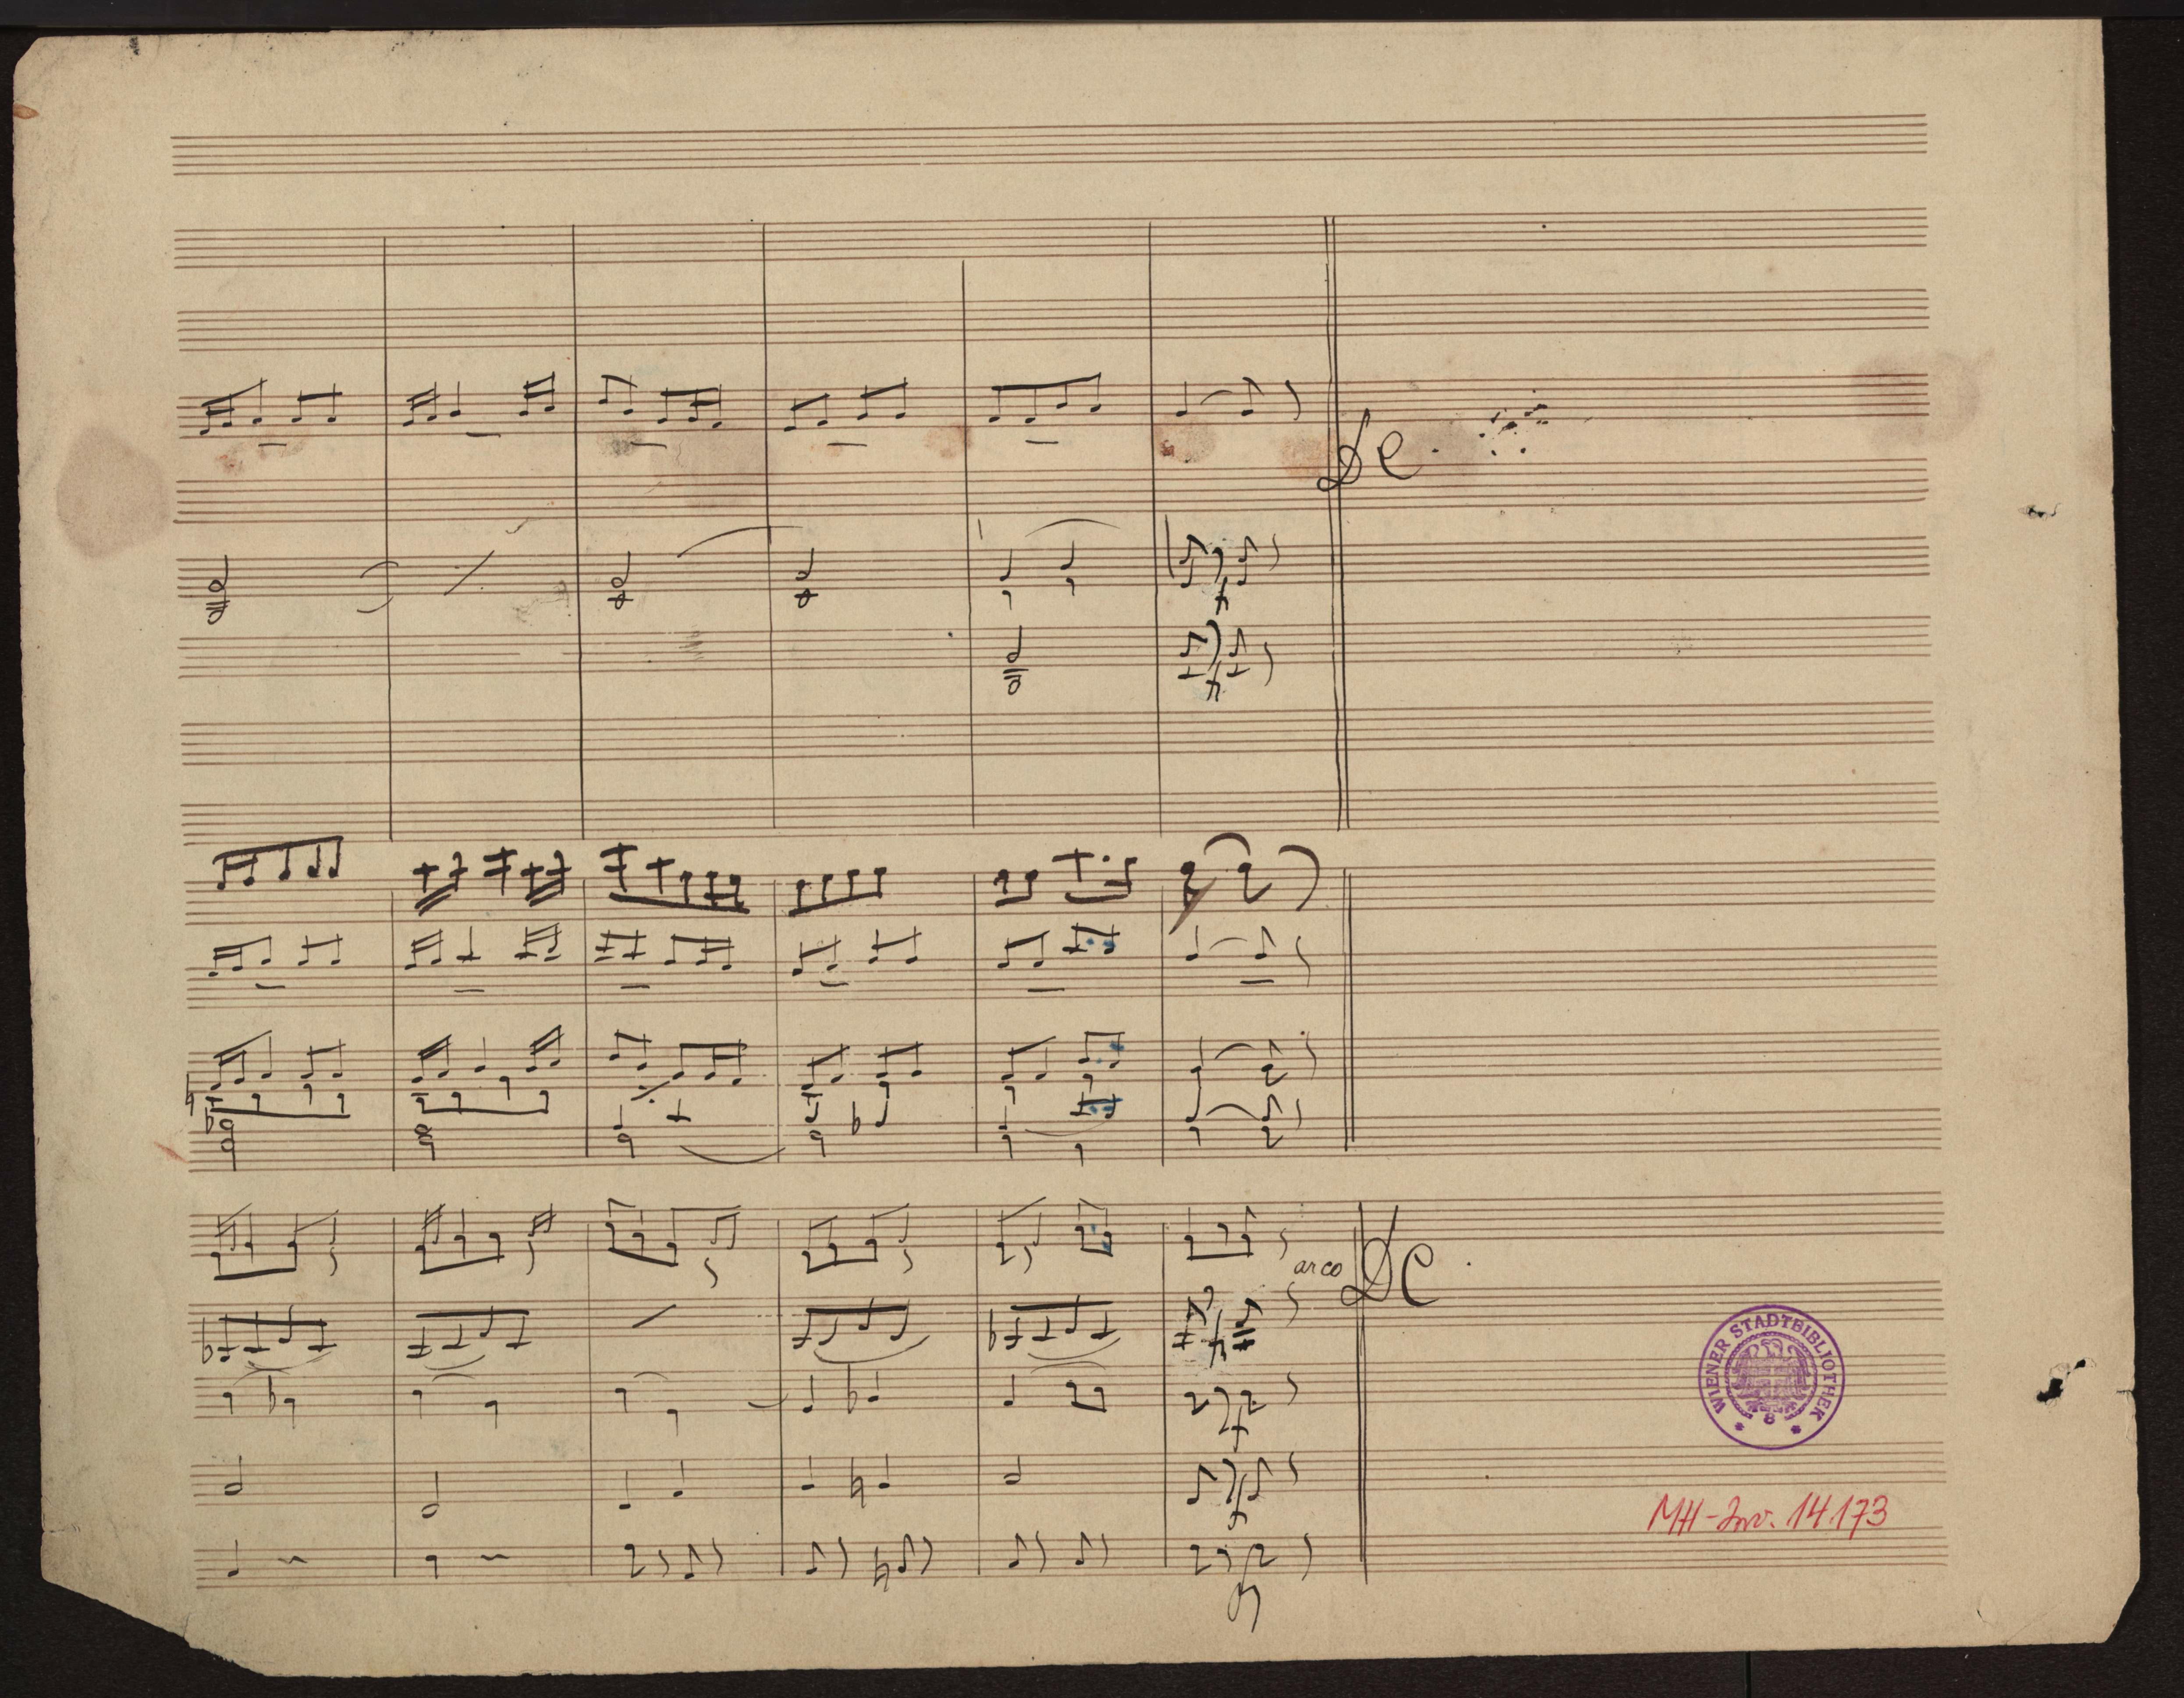 DC.
f
f
arco
DC.
f
f
f
f
WIENER STADTBIBLIOTHEK
* 8 *
MH-Inv. 14173